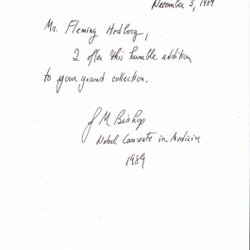 December 5, 1989
Mr. Fleming Hedborg,
I offer this humble addition
to your grand collection.
J M Bishop
Nobel Laureate in Medicine
1989